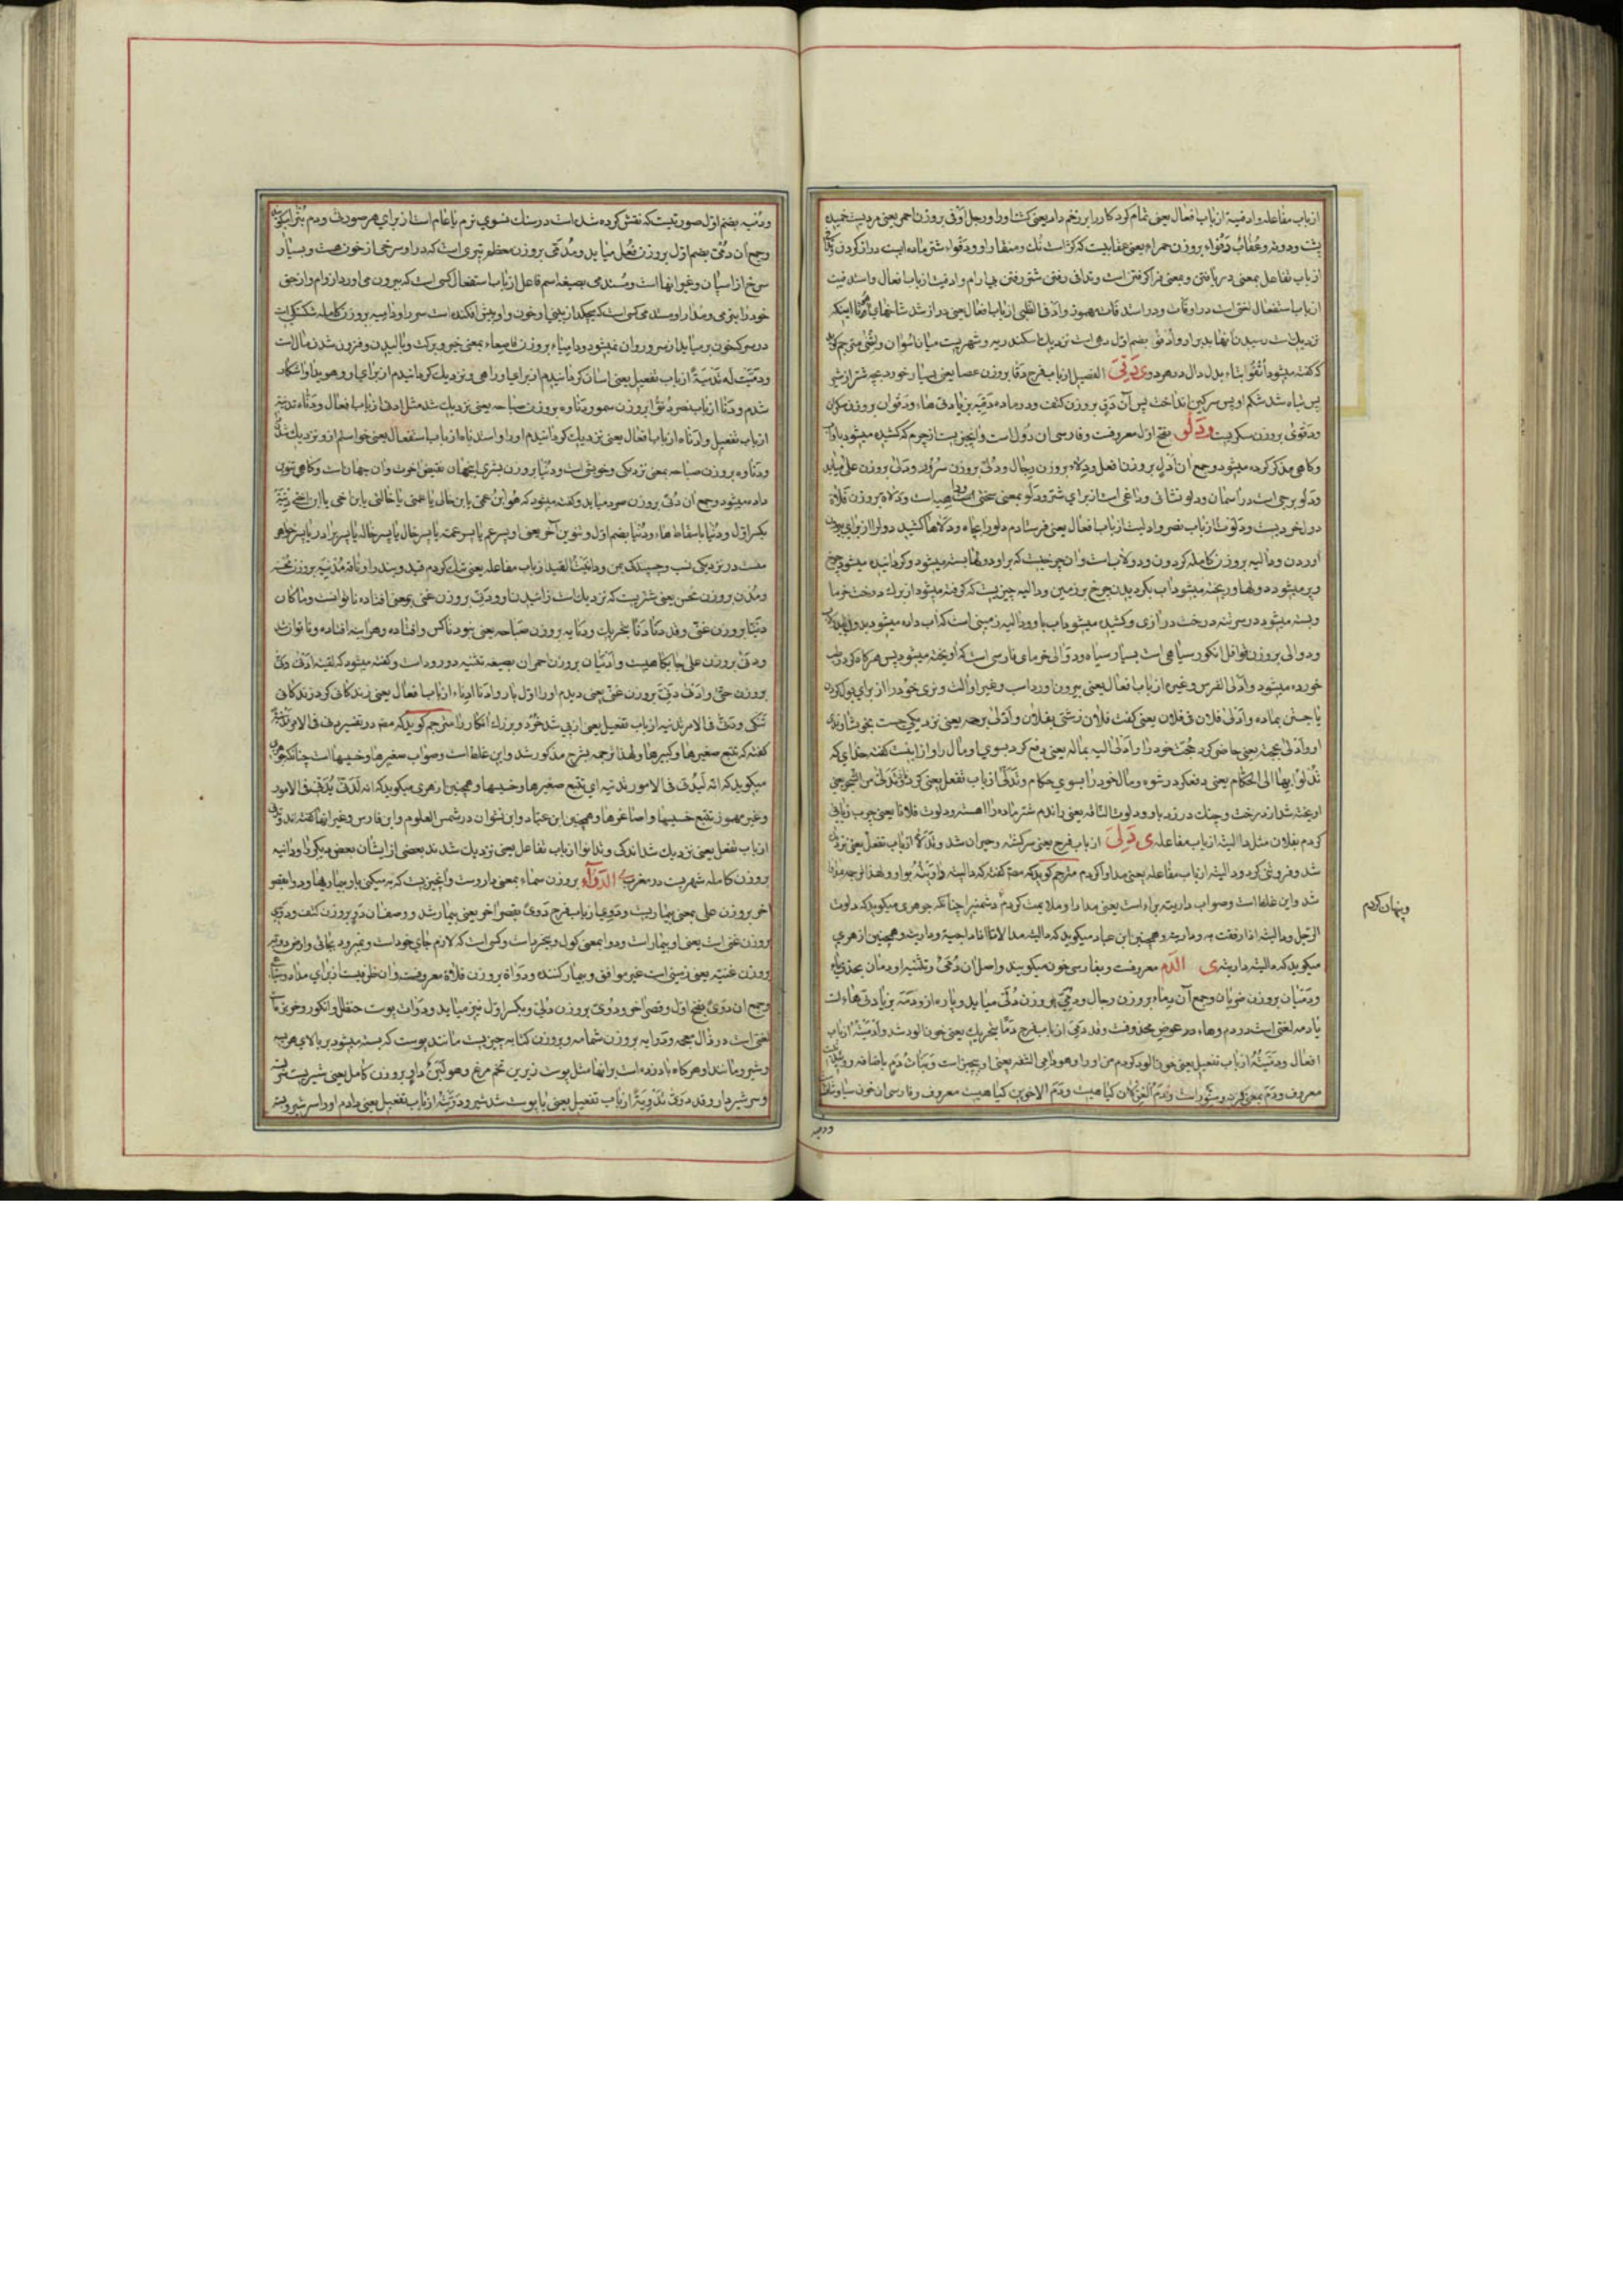 از باب مفاعله و ادفیة از باب افعال یعنی تمام کرد کار را بر زخم دار یعنی کشت او را و رجل ادفی بروزن احمر یعنی مردیست خمیده
پشت و دونه و عُقابٌ دَفْواء بروزن حمراء یعنی عقابیست که کژ است نك و منقار او و دفواء شتر ماده ایست دراز کردن
از باب تفاعل بمعنی دریافتن و بمعنی فرا کرفتن است و تدافی رفتن شتر رفتن بی ارام و ادفیت از باب افعال و استدفیت
از باب استفعال لغتی است در ادفات و در استدفات مهموز و ادفی الظبی از باب افعال یعنی دراز شد شاخهای
کفته میشود بتاء بدل دال در هر دو ی دَقِیَ الفصیل از باب فرح دقا بروزن عصا یعنی بسیار خورد بچه شتر از شیر
پس تباه شد شکم او پس سرکین انداخت پس آن دقٍ بروزن کتف و در ماده دقیه بزیادتی هاء و دقوان بروزن سکران
و دقوی بروزن سکریست و دَلْو بفتح اول معروفست و فارسی ان دول است و انچیزیست از چرم که کشیده میشود باو آب
و کاهی مذکر کرده میشود و جمع ان ادلٍ بروزن افعل و دلاء بروزن رجال و دُلیّ بروزن سرور و دلی بروزن علی میاید
و دلو برجی است در آسمان و دلو نشانی و داغی است از برای شتر و دلو بمعنی سختی است و دلاة بروزن فلاة
دول خردیست و دلوت از باب نصر و ادلیت از باب افعال یعنی فرستادم دلو را بچاه و دلاها کشید دول را از برای بیرون
اوردن و دالیه بروزن کامله کردون و دولاب است و ان چرخیست که بر او دولها بسته میشود و کردانیده میشود چرخ
و پر میشود دولها و ریخته میشود اب بکردیدن چرخ بر زمین و دالیه چیزیست که کرفته میشود از برك درخت خرما
و بسته میشود در سر تنه درخت درازی و کشیده میشود اب باو و دالیه زمینی است که اب داده میشود بدول
و دوالی بروزن قوافل انکور سیاهی است بسیار سیاه و دوالی خرمای فارسی است که اویخته میشود پس هرکاه کردد رطب
خورده میشود و اَدْلَی الفرس و غیره از باب افعال یعنی بیرون اورد اسب و غیر او الت و نری خود را از برای بول کردن
یا جستن بماده و ادلی فلان فی فلان یعنی کفت فلان زشتی بفلان و ادلی برحمه یعنی نزدیکی جست بخویشاوندی
او و ادلی بحجته یعنی حاضر کرد حجت خود را و ادلی الیه بماله یعنی دفع کرد بسوی او مال را و از اینست کفته خدای که
تُدْلُوا بِهَا اِلَی الحُکّامِ یعنی دفع کرد رشوه و مال خود را بسوی حکام و تَدَلّی از باب تفعل یعنی
اویخته شد از درخت و چنك در زد باو و دلوت الناقه یعنی راندم شتر ماده را اهسته و دلوت فلانا یعنی چرب زبانی
کردم بفلان مثل دالیته از باب مفاعله ی دَلِیَ از باب فرح یعنی سرکشته و حیران شد و تدلی از باب تفعل یعنی نزدیك
شد و فروتنی کرد و دالیته از باب مفاعله یعنی مداوا کردم مترجم کوید که مصه کفته که دالیته داویته بواو و لهذا ترجمه مذکور
شد و این غلط است و صواب داریته براء است یعنی مدارا و ملایمت کردم دشمنی را چنانکه جوهری میکوید که دلوت
الرجل و دالیته اذا رفقت به و داریته و همچنین ابن عباد میکوید که دالیته مدالاتا اذا داجیته و داریته و همچنین ازهری
میکوید که دالیته داریته ی الدَّم معروفست و بفارسی خون میکویند و اصل ان دَمَیٌ و تثنیه او دمان بحذف یاء
و دمیان بروزن ضربان و جمع آن دماء بروزن رجال و دمیّ بروزن دُلیّ میاید و پاره از او دَمَه بزیادتی هاء است
یا دمه لغتی است در دم و هاء در عوض محذوفست و قد دمی از باب فرح دَمًا بتحریك یعنی خون الود شد و ادمیته از باب
افعال و دمّیته از باب تفعیل یعنی خون الود کردم من او را و هو دامی الشفه یعنی او بیچیز است و بنات دم باضافه
معروف و دَم بمعنی کربه و سنّور است و دَم الغزلان کیاهیست و دم الاخوین کیاهیست معروف و فارسی ان خون سیاوشان
و پنهان کردم
و دمیه
و دُمیه بضم اول صورتیست که نقش کرده شده است در سنك سفیدی نرم یا عام است از برای هر صورتی و دم
و جمع ان دُمًی بضم اول بروزن فُعَل میاید و مُدَمّی بروزن معظم تیری است که در او سرخی از خون هست و بسیار
سرخ از اسپان و غیر انها است و مُستدمی بصیغه اسم فاعل از باب استفعال کسی است که بیرون می اورد از وام دار حق
خود را بنرمی و مدارا و مستدمی کسی است که میچکد از بینی او خون و او پیش افکنده است سر را و دامیه بروزن کامله شکستگی است
در سر که خون بر میاید از سر و روان نمیشود و دامیاء بروزن قاصعاء بمعنی خیر و برکت و بالیدن و فزون شدن مال است
و دَمَّیتُ لَه تَدْمِیَةً از باب تفعیل یعنی اسان کردانیدم از برای او راهی و نزدیك کردانیدم از برای او و هویدا و اشکار
شدم و دنا از باب نصر دُنُوًّا بروزن سمو و دناوه بروزن صباحه یعنی نزدیك شد مثل ادنی از باب افعال و دنّاه تدنیه
از باب تفعیل و ادناه از باب افعال یعنی نزدیك کردانیدم او را و استدناه از باب استفعال یعنی خواستم از او نزدیك شدن
و دناوه بروزن صباحه بمعنی نزدیکی و خویشی است و دنیا بروزن بشری اینجهان نقیض اخرت و ان جهانست و کاهی تنوین
داده میشود و جمع ان دُنًی بروزن سرد میاید و کفته میشود که هو ابن عمی یا ابن خالی یا عمتی یا خالتی یا ابن اخی یا ابن اختی دِنیَه
بکسر اول و دُنیا باسقاط هاء و دُنیا بضم اول و تنوین اخر یعنی او پسر عم یا پسر عمه یا پسر خال یا پسر خاله یا پسر برادر یا پسر خواهر
منست در نزدیکی نسب و چسبندکی بمن و دانیت القید از باب مفاعله یعنی تنك کردم قید و بند را و ناقة مُدنیه بروزن محسنه
و مُدنٍ بروزن محسن یعنی شتریست که نزدیك است زائیدن او و دنی بروزن غنی بمعنی افتاده ناتوانست و ما کان
دَنِیًّا بروزن غنی و قد دنا دَنًا بتحریك و دنایه بروزن صباحه یعنی نبود ناکس و افتاده و هراینه افتاده و ناتوان شد
و دنی بروزن علی جایکاهیست و ادنیان بروزن احمران بصیغه تثنیه دو رود است و کفته میشود که لقیته ادنی دنیّ
بروزن حتی و ادنی دنیّ بروزن غنی یعنی دیدم او را اول بار و ادنا ادناء از باب افعال یعنی زندکانی کرد زندکانی
تنکی و دنّی فی الامر تدنیه از باب تفعیل یعنی از پی شد خورد و بزرك انکار را مترجم کوید که مصه در تفسیر دنی فی الامور
کفته که تتبع صغیرها و کبیرها و لهذا ترجمه بشرح مذکور شد و این غلط است و صواب صغیرها و خسیسها است چنانکه جوهری
میکوید که انّه لیُدَنّی فی الامور تدنیه ای یتتبع صغیرها و خسیسها و همچنین ازهری میکوید که انه لدنی یُدَنّی فی الامور
و غیر مهموز یتتبع خسیسها و اصاغرها و همچنین ابن عباد و ابن نشوان در شمس العلوم و ابن فارس و غیر انها کفته اند
از باب تفعل یعنی نزدیك شد اندك و تدانوا از باب تفاعل یعنی نزدیك شدند بعضی از ایشان ببعضی دیکر و دانیه
بروزن کامله شهریست در مغرب ی الدَّوَاء بروزن سماء بمعنی دارو است و انچیزیست که به میکنی باو بیماریها و دوا بقصر
اخر بروزن علی بمعنی بیماریست و دَوِیَ از باب فرح دَوًی بقصر اخر یعنی بیمار شد و وصف ان دوٍ بروزن کتف و دَوِیّ
بروزن غنی است یعنی او بیمار است و دوا بمعنی کول و بیخرد است و کسی است که لازم جای خود است و نمیرود بجائی و ارض دویه
بروزن غنیه یعنی زمینی است غیر موافق و بیمار کننده و دواة بروزن فلاة معروفست و ان ظرفیست از برای مداد و سیاهی
و جمع ان دوًی بفتح اول و قصر اخر و دُوِیّ بروزن دُلیّ و بکسر اول نیز میاید و دوات پوست حنظل و انکور و خربزه
لغتی است در ذال معجمه و دوایه بروزن شمامه و بروزن کتابه چیزیست مانند پوست که بسته میشود بر بالای هریسه
و شیر و مانند او هرکاه باد زده است بر انها مثل پوست زیرین تخم مرغ و هو لبنٌ داوٍ بروزن کامل یعنی شیریست
و سر شیر دار و قد دوّی تدویةً از باب تفعیل یعنی با پوست شد شیر و دوّیته از باب تفعیل یعنی دادم او را سر شیر